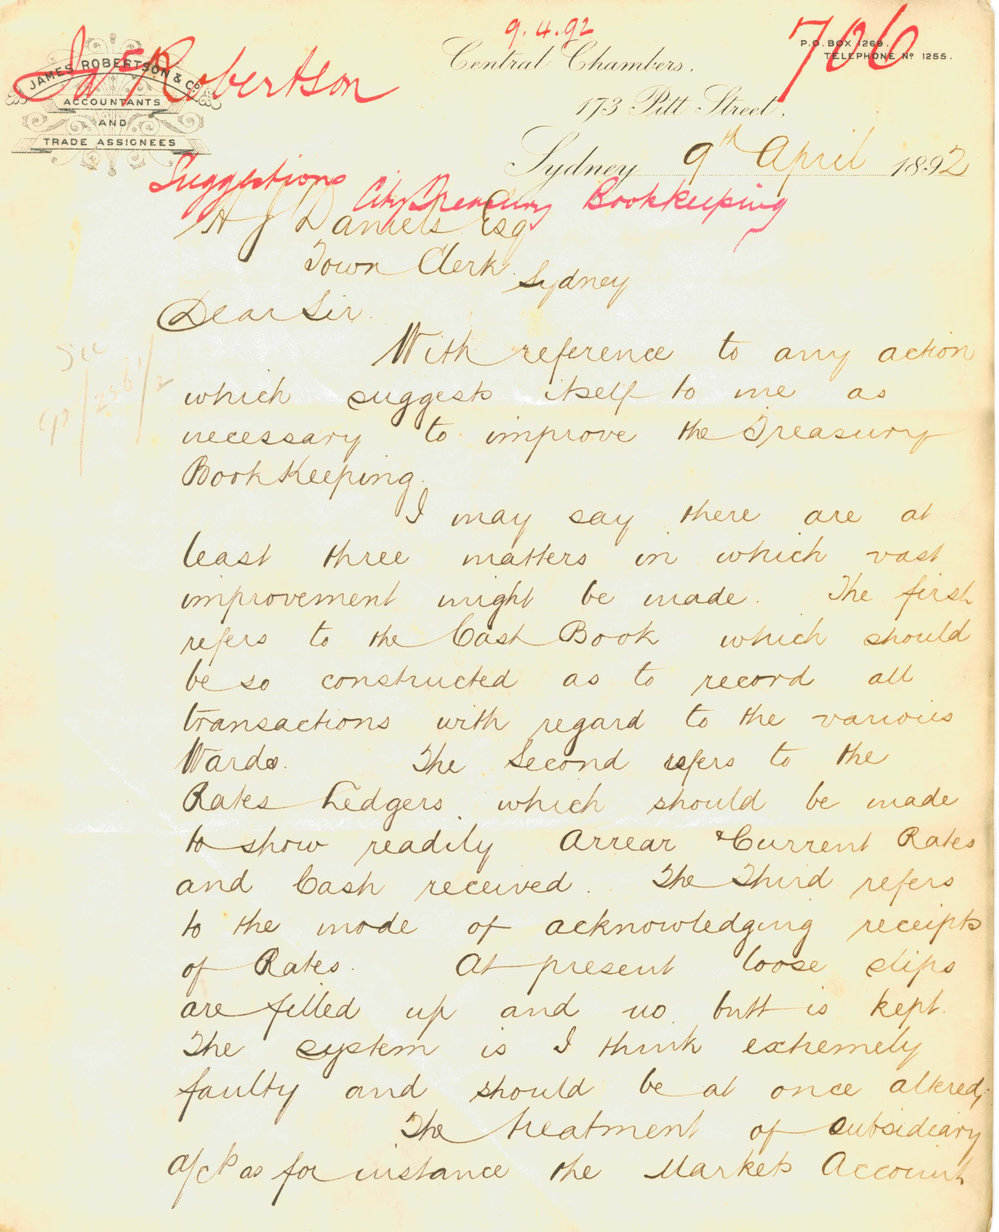 9.4.92
706
Jas Robertson
JAMES ROBERTSON & Co.
ACCOUNTANTS
AND
TRADE ASSIGNEES
P.O. BOX 1269.
TELEPHONE No 1255.
Central Chambers.
173 Pitt Street.
Sydney 9th April 1892
Suggestions City Treasury Bookkeeping
H J Daniels Esq
Town Clerk.
Sydney
Dear Sir.
With reference to any action
which suggests itself to me as
necessary to improve the Treasury
BookKeeping.
I may say there are at
least three matters in which vast
improvement might be made. The first
refers to the Cash Book which should
be so constructed as to record all
transactions with regard to the various
Wards. The Second refers to the
Rates Ledgers which should be made
to show readily Arrear & Current Rates
and Cash received. The Third refers
to the mode of acknowledging receipts
of Rates. At present loose slips
are filled up and no butt is kept.
The system is I think extremely
faulty and should be at once altered.
The treatment of subsideary
a/cts as for instance the Markets Account